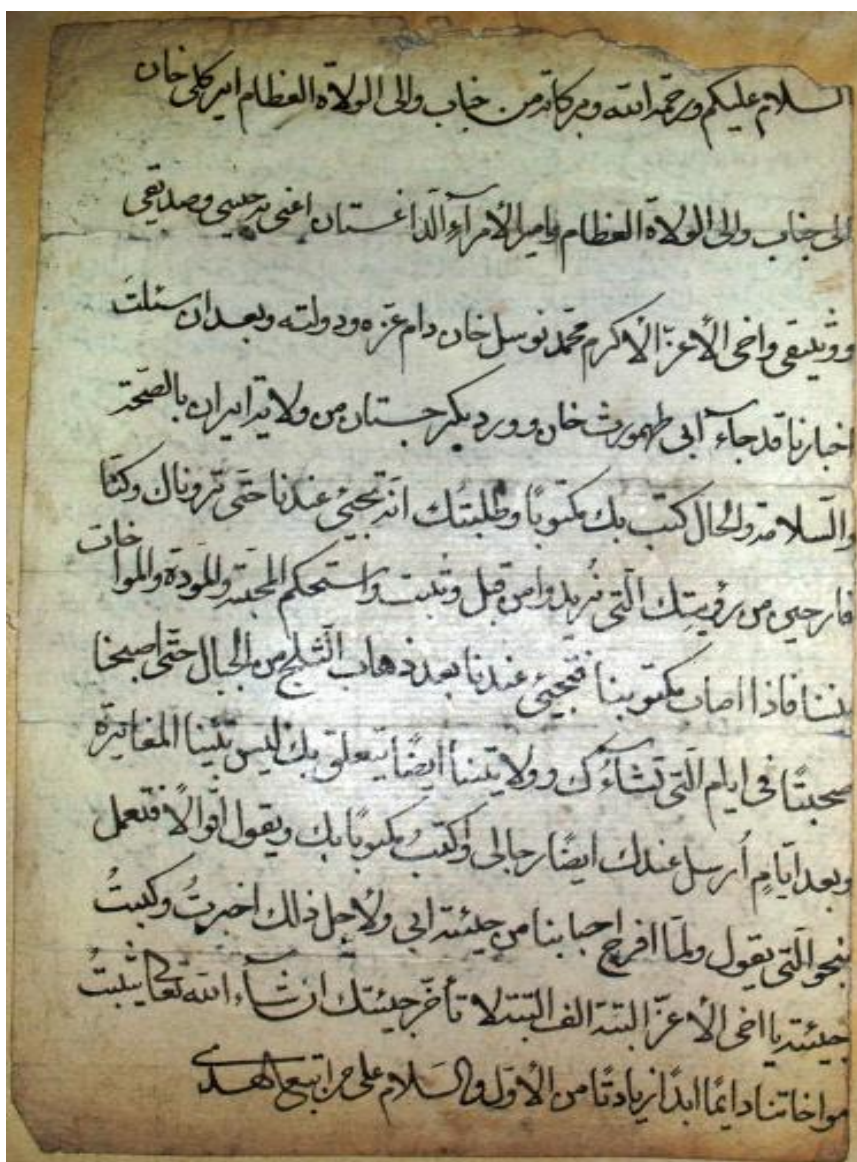 السلام عليكم ورحمة الله وبركاته من جناب والى الولاة العظام ايركلى خان
الى جناب والى الولاة العظام وامير الأمرآء الداغستان اعنى به حبيبى وصديقى
ووثيقى واخى الأعزّ الأكرم محمّد نوسل خان دام عزّه ودولته وبعد ان سئلتَ
اخبارنا قد جآء ابى طهمورث خان وورد بكرجستان من ولاية ايران بالصّحّة
والسّلامة والحال كتب بك مكتوبًا وطلبتك انّه تجيئى عندنا حتّى نرونّاك وكنّا
فارحين من رؤيتك الّتى نريد وامن قبل وثبت واستحكم المحبّة والمودّة والمواخات
بيننا فاذا اصاب مكتوبنا فتجيئى عندنا بعد ذهاب الثّلج من الجبال حتّى اصبحنا
صحبتًا فى ايام الّتى تشآءك وولايتنا أيضًا يتعلّق بك ليس بيننا المغايرة
وبعد ايّامٍ أرسل عندك ايضًا رجالى واكتبُ مكتوبًا بك ويقول اقوالاً فتعمل
بنحو الّتى يقول ولمّا افرح احبابنا من جيئة ابى ولأجل ذالك اخبرتُ وكتبتُ
جيئته يا اخى الأعزّ البتة الف البتة لا تأخّر جيئتك ان شآء الله تعالى يثبتُ
مواخاتنا دايمًا ابدًا زيادتًا من الأوّل والسّلام على من اتبع الهدى